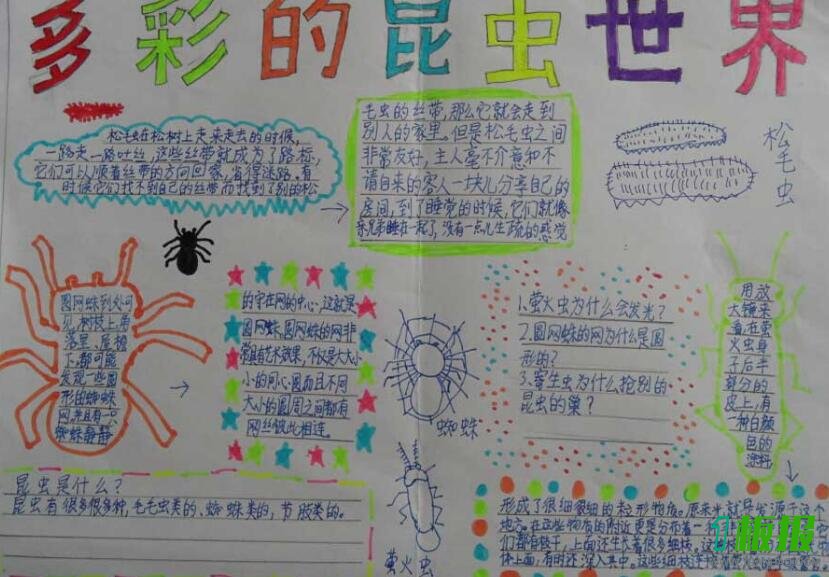 多彩的昆虫世界
松毛虫在松树上走来走去的时候,
一路走一路吐丝,这些丝带就成为了路标,
它们可以顺着丝带的方向回家,省得迷路。有
时候它们找不到自己的丝带而找到了别的松
毛虫的丝带,那么它就会走到
别人的家里。但是松毛虫之间
非常友好,主人毫不介意和不
请自来的客人一块儿分享自己的
房间,到了睡觉的时候,它们就像
亲兄弟睡在一起了,没有一点儿生疏的感觉
松毛虫
圆网蛛到处可
见,树枝上、角
落里、屋檐
下,都可能
发现一些圆
形的蜘蛛
网,并且有一只
蜘蛛静静
的守在网的中心,这就是
圆网蛛。圆网蛛的网非
常具有艺术效果,不仅是大大小
小的同心圆而且不同
大小的圆周之间都有
网丝彼此相连。
蜘蛛
1.萤火虫为什么会发光?
2.圆网蛛的网为什么是圆
形的?
3.寄生虫为什么抢别的
昆虫的巢?
用放
大镜来
看,在萤
火虫身
子后半
部分的
皮上,有
一种白颜
色的
涂料
昆虫是什么?
昆虫有很多很多种,毛毛虫类的、蜘蛛类的,节肢类的。
萤火虫
形成了很细很细的粒形物质。原来光就是发源于这个
地方。在这些物质的附近更是分布着一
们都有枝干,上面还生长着很多细枝。这
体上面,有时还深入其中。这些细枝连
板报